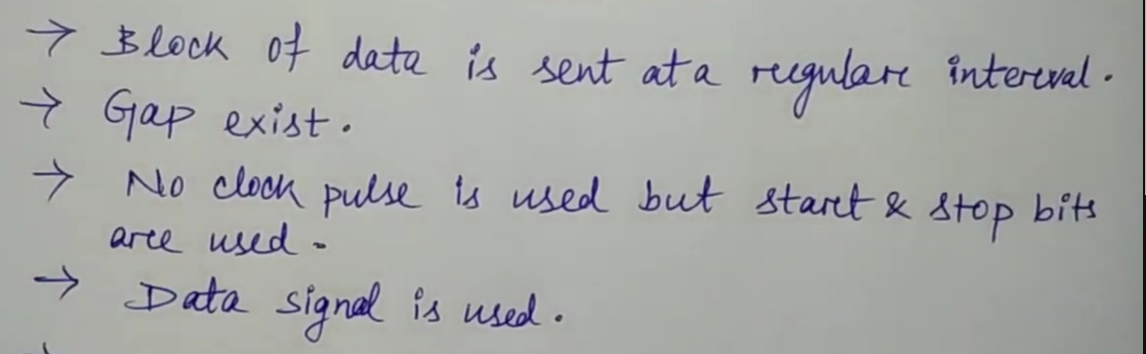 → Block of data is sent at a regular interval.
→ Gap exist.
→ No clock pulse is used but start & stop bits
are used.
→ Data signal is used.